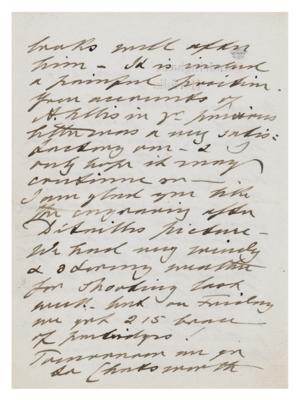 looks well after
him – It is indeed
a painful position.
from accounts of
in yr previous
letter was a very satis=
factory one – & I
only hope it may
continue so –
I am glad you like
the engraving after
picture –
We had very windy
& stormy weather
for shooting last
week – but on Friday
we got 215 brace
of partridges!
Tomorrow we go
to Chatsworth